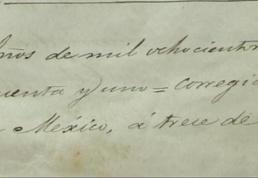 años de mil ochocientos
cuenta y uno = corregi
México, á trece de